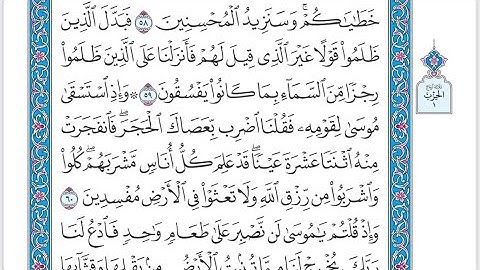 خَطَٰيَٰكُمْۚ وَسَنَزِيدُ ٱلْمُحْسِنِينَ ٥٨ فَبَدَّلَ ٱلَّذِينَ
ظَلَمُوا۟ قَوْلًا غَيْرَ ٱلَّذِى قِيلَ لَهُمْ فَأَنزَلْنَا عَلَى ٱلَّذِينَ ظَلَمُوا۟
رِجْزًا مِّنَ ٱلسَّمَآءِ بِمَا كَانُوا۟ يَفْسُقُونَ ٥٩ ۞ وَإِذِ ٱسْتَسْقَىٰ
مُوسَىٰ لِقَوْمِهِۦ فَقُلْنَا ٱضْرِب بِّعَصَاكَ ٱلْحَجَرَۖ فَٱنفَجَرَتْ
مِنْهُ ٱثْنَتَا عَشْرَةَ عَيْنًاۖ قَدْ عَلِمَ كُلُّ أُنَاسٍ مَّشْرَبَهُمْۖ كُلُوا۟
وَٱشْرَبُوا۟ مِن رِّزْقِ ٱللَّهِ وَلَا تَعْثَوْا۟ فِى ٱلْأَرْضِ مُفْسِدِينَ ٦٠
وَإِذْ قُلْتُمْ يَٰمُوسَىٰ لَن نَّصْبِرَ عَلَىٰ طَعَامٍ وَٰحِدٍ فَٱدْعُ لَنَا
رَبَّكَ يُخْرِجْ لَنَا مِمَّا تُنۢبِتُ ٱلْأَرْضُ مِنۢ بَقْلِهَا وَقِثَّآئِهَا
الحزب